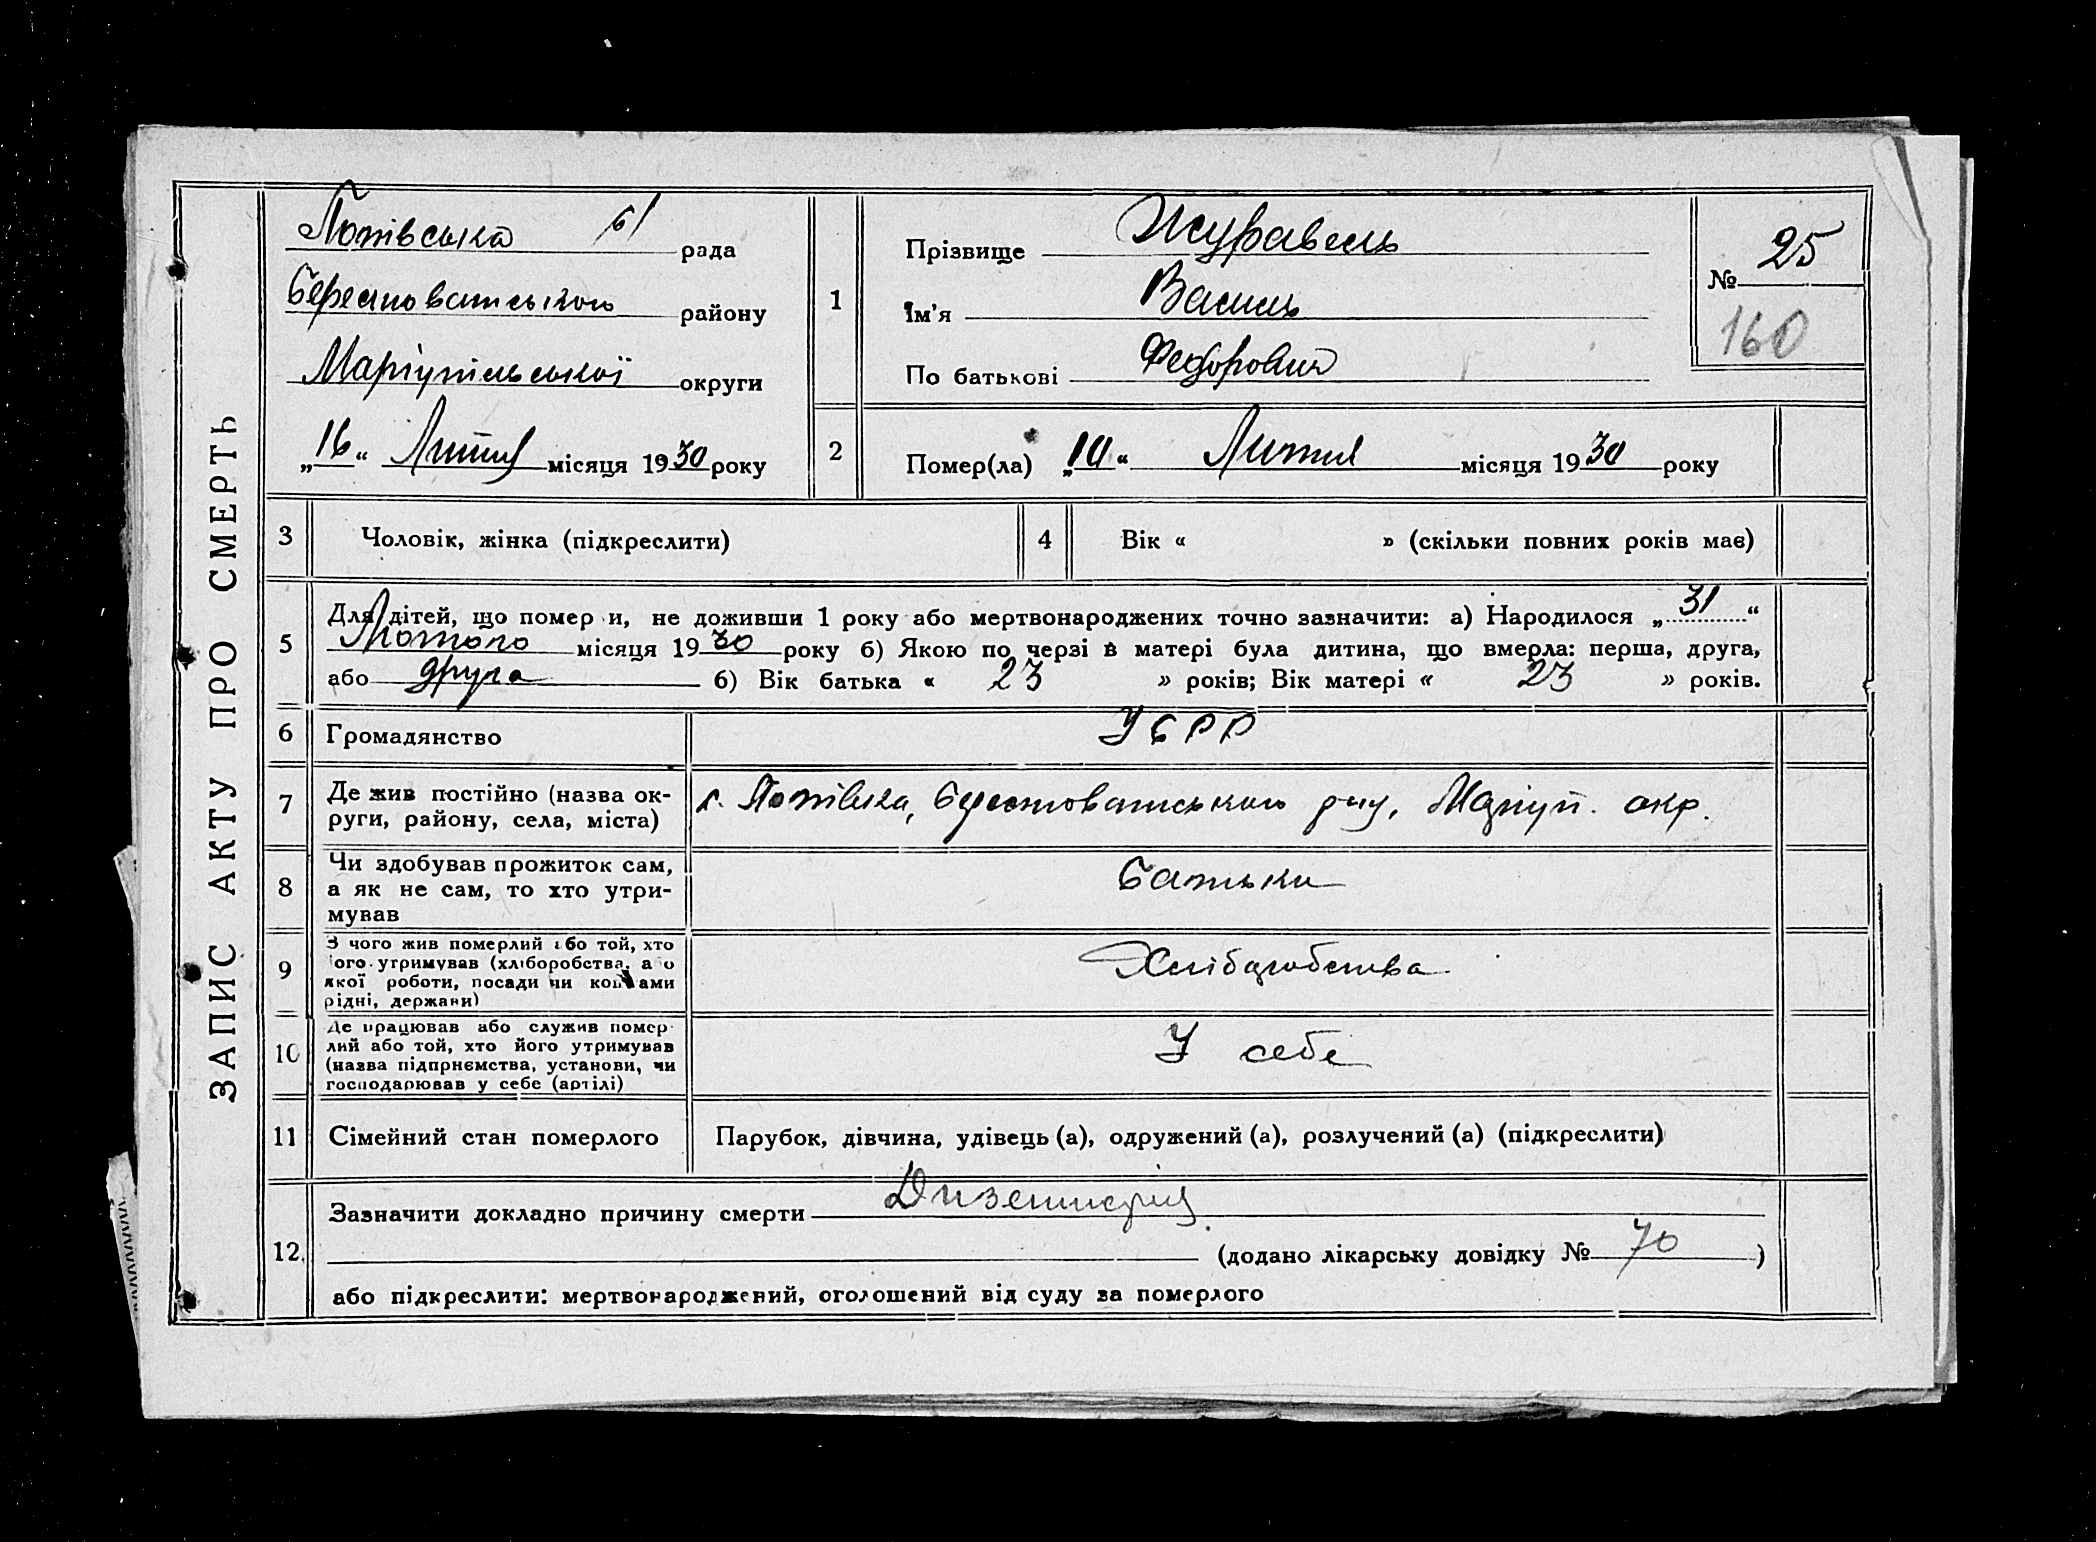 ЗАПИС АКТУ ПРО СМЕРТЬ
Попівська 61 рада
Берестоватського району
Маріупільської округи
„16“ Лютня місяця 1930 року
1
Прізвище Журавель
Ім'я Василь
По батькові Федорович
№ 25
160
2
Помер(ла) „10“ Лютня місяця 1930 року
3 Чоловік, жінка (підкреслити)
4 Вік « » (скільки повних років має)
5
Для дітей, що помер и, не доживши 1 року або мертвонароджених точно зазначити: а) Народилося „31“
Лютого місяця 1930 року б) Якою по черзі в матері була дитина, що вмерла: перша, друга,
або друга б) Вік батька « 23 » років; Вік матері « 23 » років.
6 Громадянство УСРР
7 Де жив постійно (назва ок-
руги, району, села, міста)
с. Попівка, Берестоватського р-ну, Маріуп. окр.
8 Чи здобував прожиток сам,
а як не сам, то хто утри-
мував
Батьки
9 З чого жив померлий або той, хто
його утримував (хліборобства, або
якої роботи, посади чи коштами
рідні, держави)
Хліборобства
10 Де працював або служив помер-
лий або той, хто його утримував
(назва підпрнємства, установи, чи
господарював у себе (артілі)
У себе
11 Сімейний стан померлого
Парубок, дівчина, удівець (а), одружений (а), розлучений (а) (підкреслити)
12.
Зазначити докладно причину смерти Дизентерія
(додано лікарську довідку № 70 )
або підкреслити: мертвонароджений, оголошений від суду за померлого